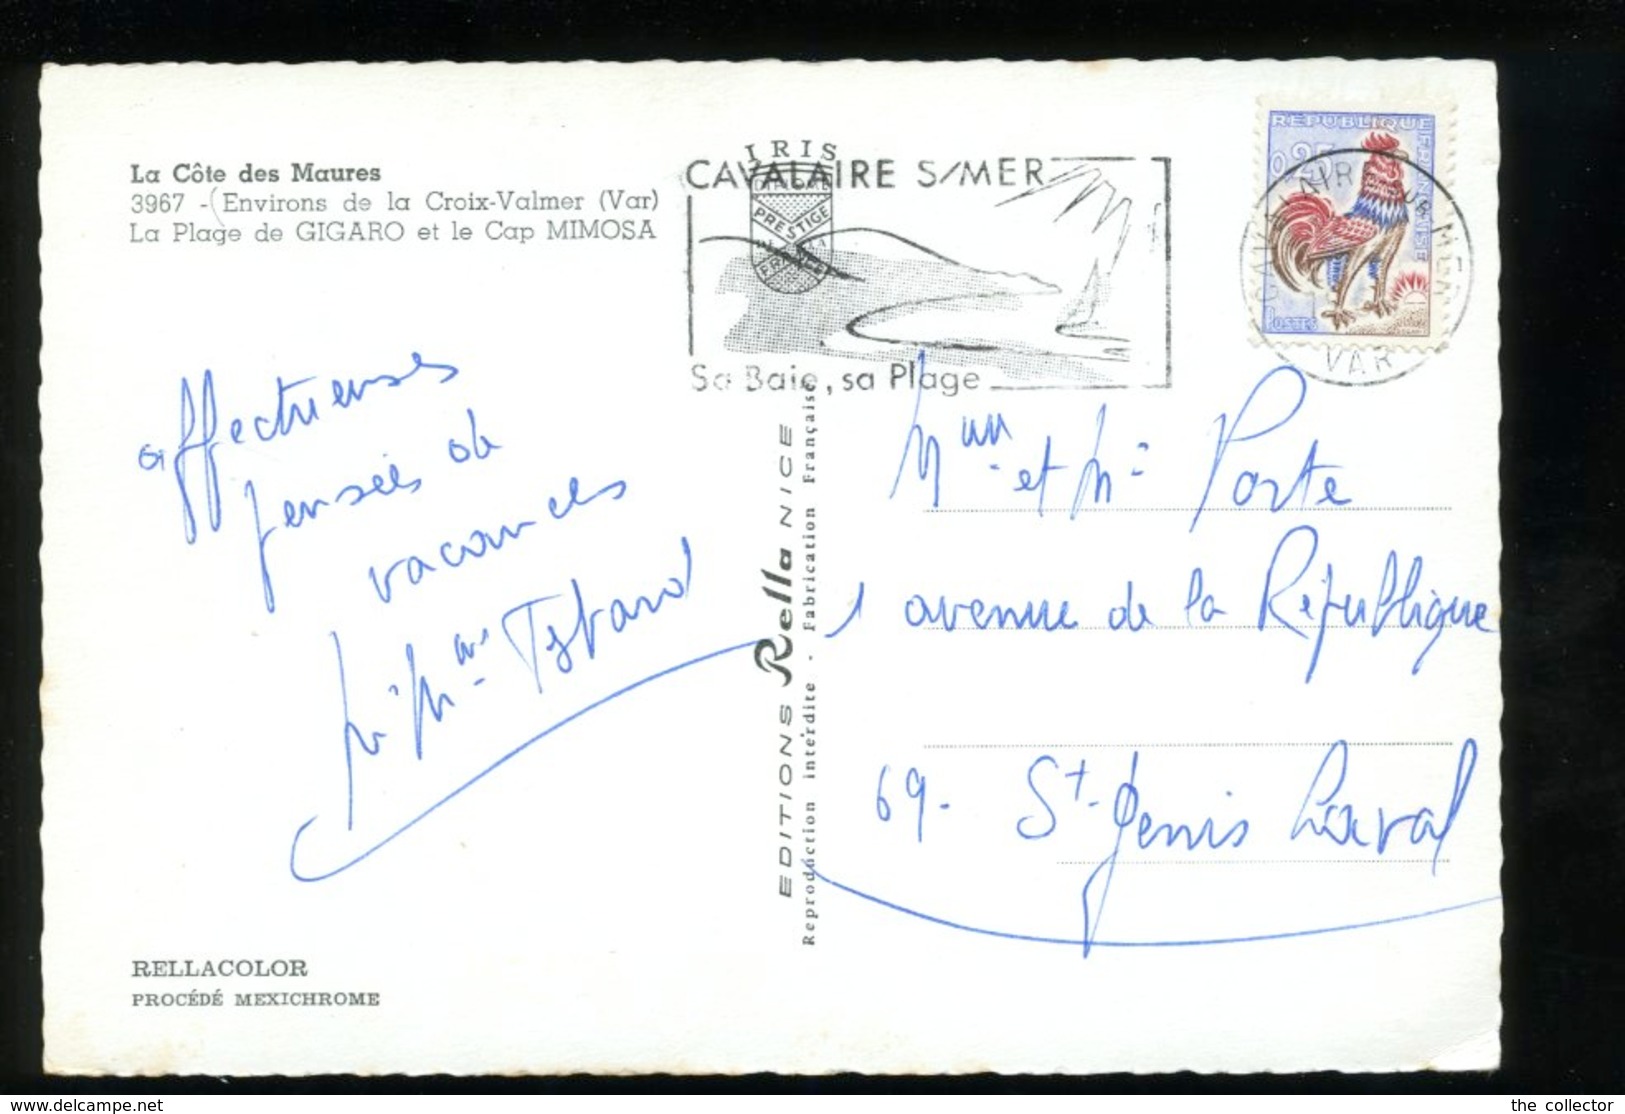 La Côte des Maures
3967 - (Environs de la Croix-Valmer (Var)
La Plage de GIGARO et le Cap MIMOSA
IRIS
DIPLOME
PRESTIGE
DE LA
FRANCE
CAVALAIRE S/MER
Sa Baie, sa Plage
REPUBLIQUE
FRANÇAISE
0,25
POSTES
CAVALAIRE SUR MER
VAR
affectueuses
pensées de
vacances
Mr Mme
EDITIONS Rella NICE
Reproduction interdite - Fabrication Française
Mme et Mr Porte
1 avenue de la République
69 - St-Genis Laval
RELLACOLOR
PROCÉDÉ MEXICHROME
www.delcampe.net
the collector